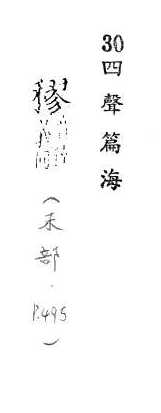 30四聲篇海
穆
(禾部.P.495)